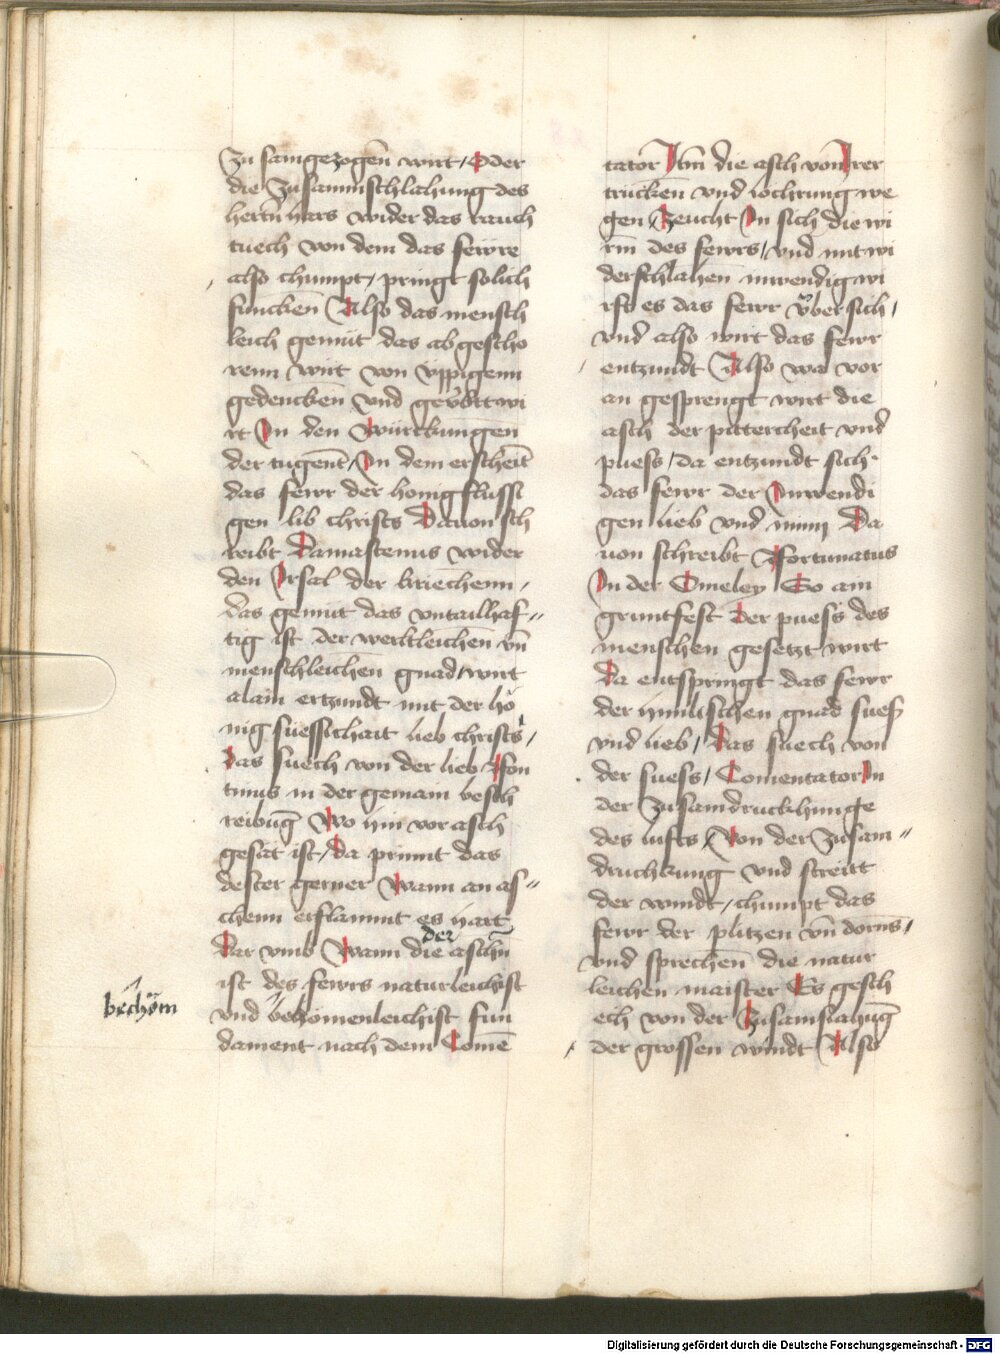 zu samgezogen wirt / Oder
die zusammschlahung des
hertn̄ hars wider das rauch
tuech von dem das fewre
also chumpt / pringt solich
funcken Also das mensch
leich gemüt das abgescho
renn wirt von üppigenn
gedencken vnd gev̈bt wi
rt In den würckungen
der tugent / In dem erscheīt
das fewr der honigflussi
gen lib christs Dauon sch
reibt Damastenus wider
den Irsal der kriechenn /
das gemüt das vntailhaf-
tig ist der werltleichen vn̄
menschleichen gnad / wirt
alain ertzundt mit der hö
nig süessichait lieb christs /
das suech von der lieb Ison
tinus in der gemain besch
reibūg Wo im vor asch
gesät ist / da prinnt das
dester gerner Wann an as-
chenn erflammt es hart
der
Dar vmb Wann die aschn̄
ist des fewrs naturleichist
bechöm
vnd bekömenleichist fun
dament nach dem Comē
tator Item die asch von Irer
trucken vnd lochrung we
gen Zeucht In sich die wi
rm des fewrs / vnd mit wi
derschlahen inwendig wi
rft es das fewr v̈ber sich /
vnd also wirt das fewr
entzundt Also wa vor
an gesprengt wirt die
asch der pittercheit vnd
puess / da entzundt sich
das fewr der Inwendi
gen lieb vnd minn Da
uon schreibt Fortunatus
In der Omeley So am
gruntfest der puess des
menschen gesetzt wirt
Da entspringt das fewr
der himlischen gnad suess
vnd lieb / Das suech von
der suess / Comentator In
der zusamdruckhunge
des lufts / Von der zusam-
druckung vnd streitt
der windt / chumpt das
fewr der plitzen vn̄ dorns /
vnd sprechen die natur
leichen maister Es gesch
ech von der Zusamslahūg
der grossen windt Also
Digitalisierung gefördert durch die Deutsche Forschungsgemeinschaft - DFG